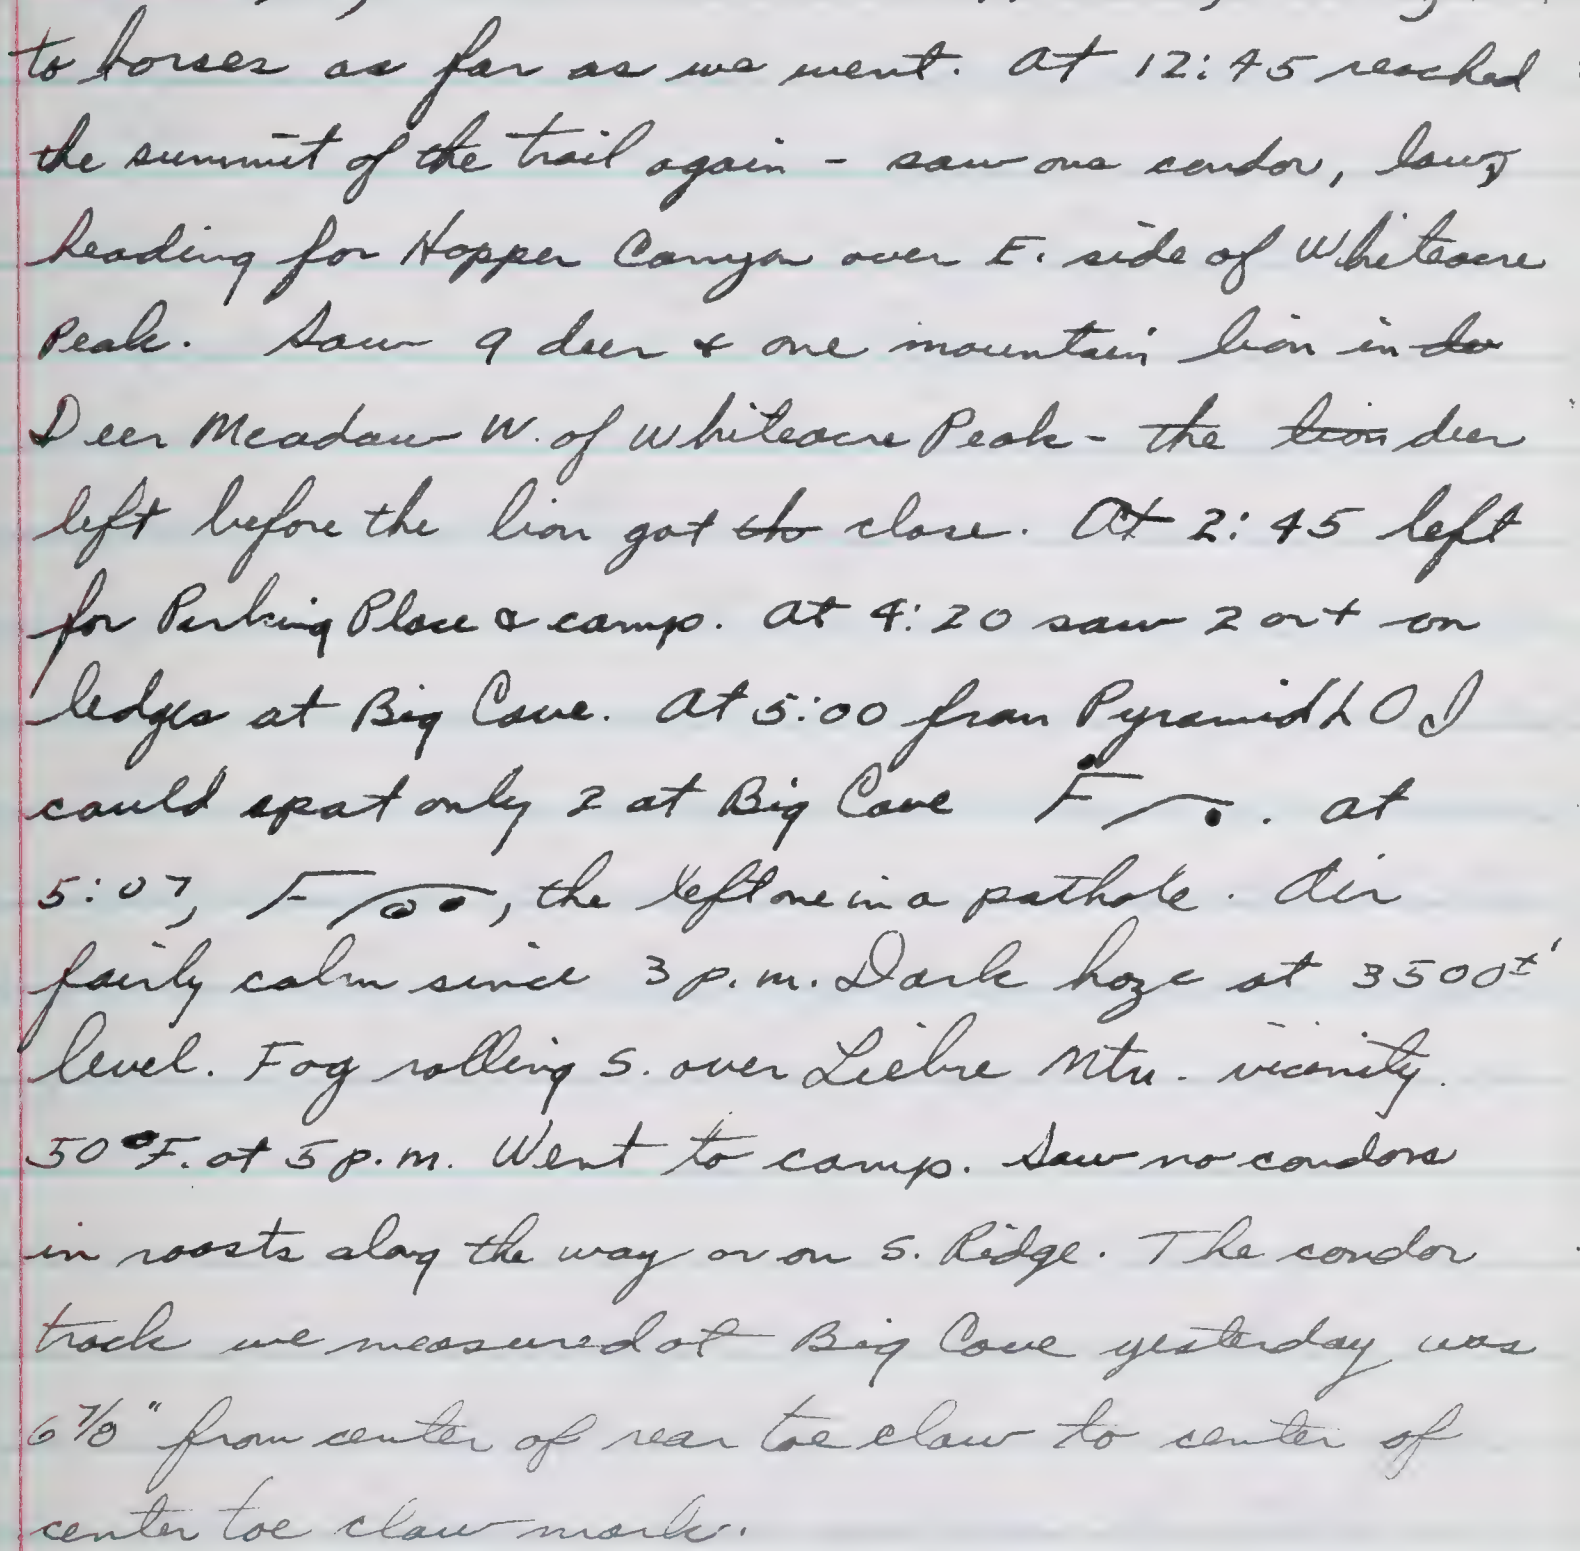 to horses as far as we went. At 12:45 reached
the summit of the trail again - saw one condor, low,
heading for Hopper Canyon over E. side of Whiteacre
Peak. Saw 9 deer & one mountain lion in de
Deer Meadow W. of Whiteacre Peak - the lion deer
left before the lion got th close. At 2:45 left
for Parking Place & camp. At 4:20 saw 2 out on
ledges at Big Cave. At 5:00 from Pyramid LO I
could spot only 2 at Big Cave F . At
5:07, F , the left one in a pothole. Air
fairly calm since 3 p.m. Dark haze at 3500±'
level. Fog rolling S. over Liebre Mtn. vicinity.
50°F. at 5 p.m. Went to camp. Saw no condors
in roosts along the way or on S. Ridge. The condor
track we measured at Big Cave yesterday was
6 7/8" from center of rear toe claw to center of
center toe claw mark.